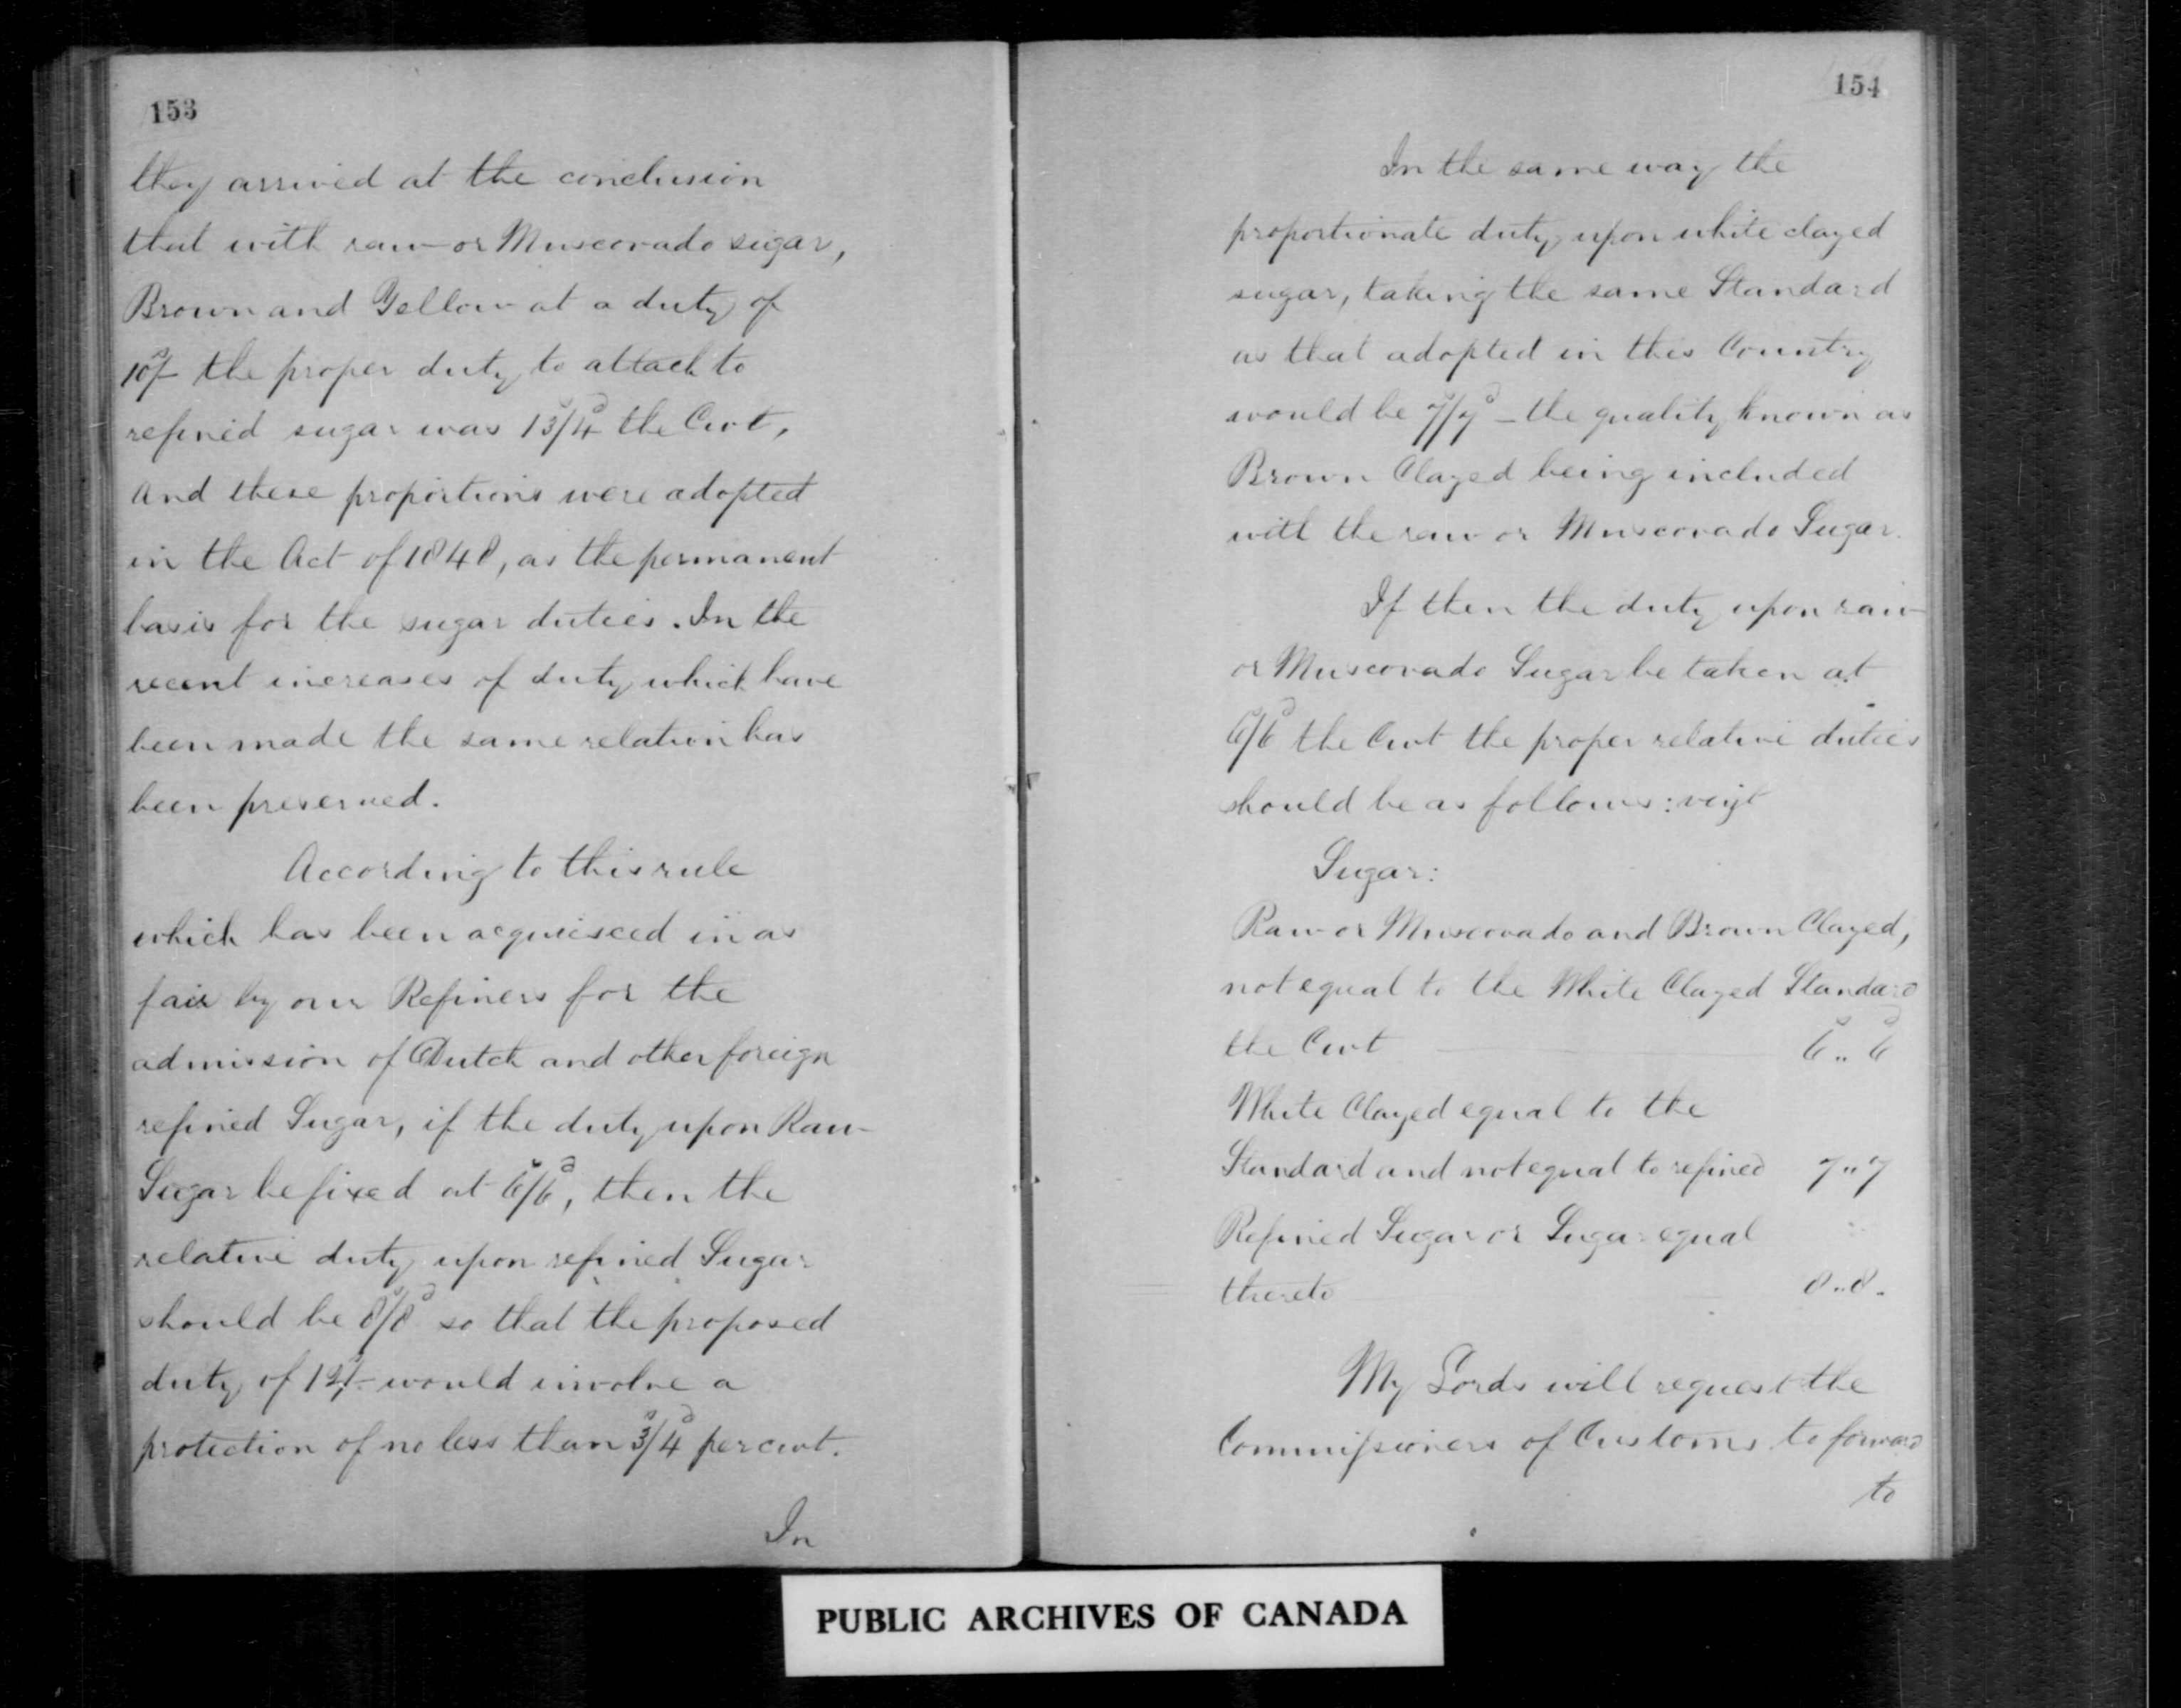 153
they arrived at the conclusion
that with raw or Muscovado sugar,
Brown and Yellow at a duty of
10s/- the proper duty to attach to
refined sugar was 13s/4d the Cwt,
and these proportions were adopted
in the Act of 1848, as the permanent
basis for the sugar duties. In the
recent increases of duty which have
been made the same relation has
been preserved.
According to this rule
which has been acquiesced in as
fair by our Refiners for the
admission of Dutch and other foreign
refined Sugar, if the duty upon Raw
Sugar be fixed at 6s/6d, then the
relative duty upon refined Sugar
should be 8s/8d so that the proposed
duty of 12s/- would involve a
protection of no less than 3s/4d per cwt.
In
154
In the same way the
proportionate duty upon white clayed
sugar, taking the same Standard
as that adopted in this Country
would be 7s/7d - the quality known as
Brown Clayed being included
with the raw or Muscovado Sugar.
If then the duty upon raw
or Muscovado Sugar be taken at
6s/6d the Cwt the proper relative duties
should be as follows: vizt
Sugar:
Raw or Muscovado and Brown Clayed,
not equal to the White Clayed Standard
the Cwt 6s.. 6d
White Clayed equal to the
Standard and not equal to refined 7..7
Refined Sugar or Sugar equal
thereto 8..8.
My Lords will request the
Commissioners of Customs to forward
to
PUBLIC ARCHIVES OF CANADA